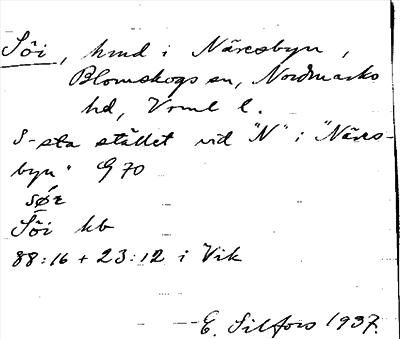 Söi, hmd i Näresbyn,
Blomskogs sn, Nordmarks
hd, Vrml l.
S-sta stället vid "N" i "Näres-
byn" G 70
søɛ
Söi hb
88:16 + 23:12 i Vik
E. Silfors 1937.